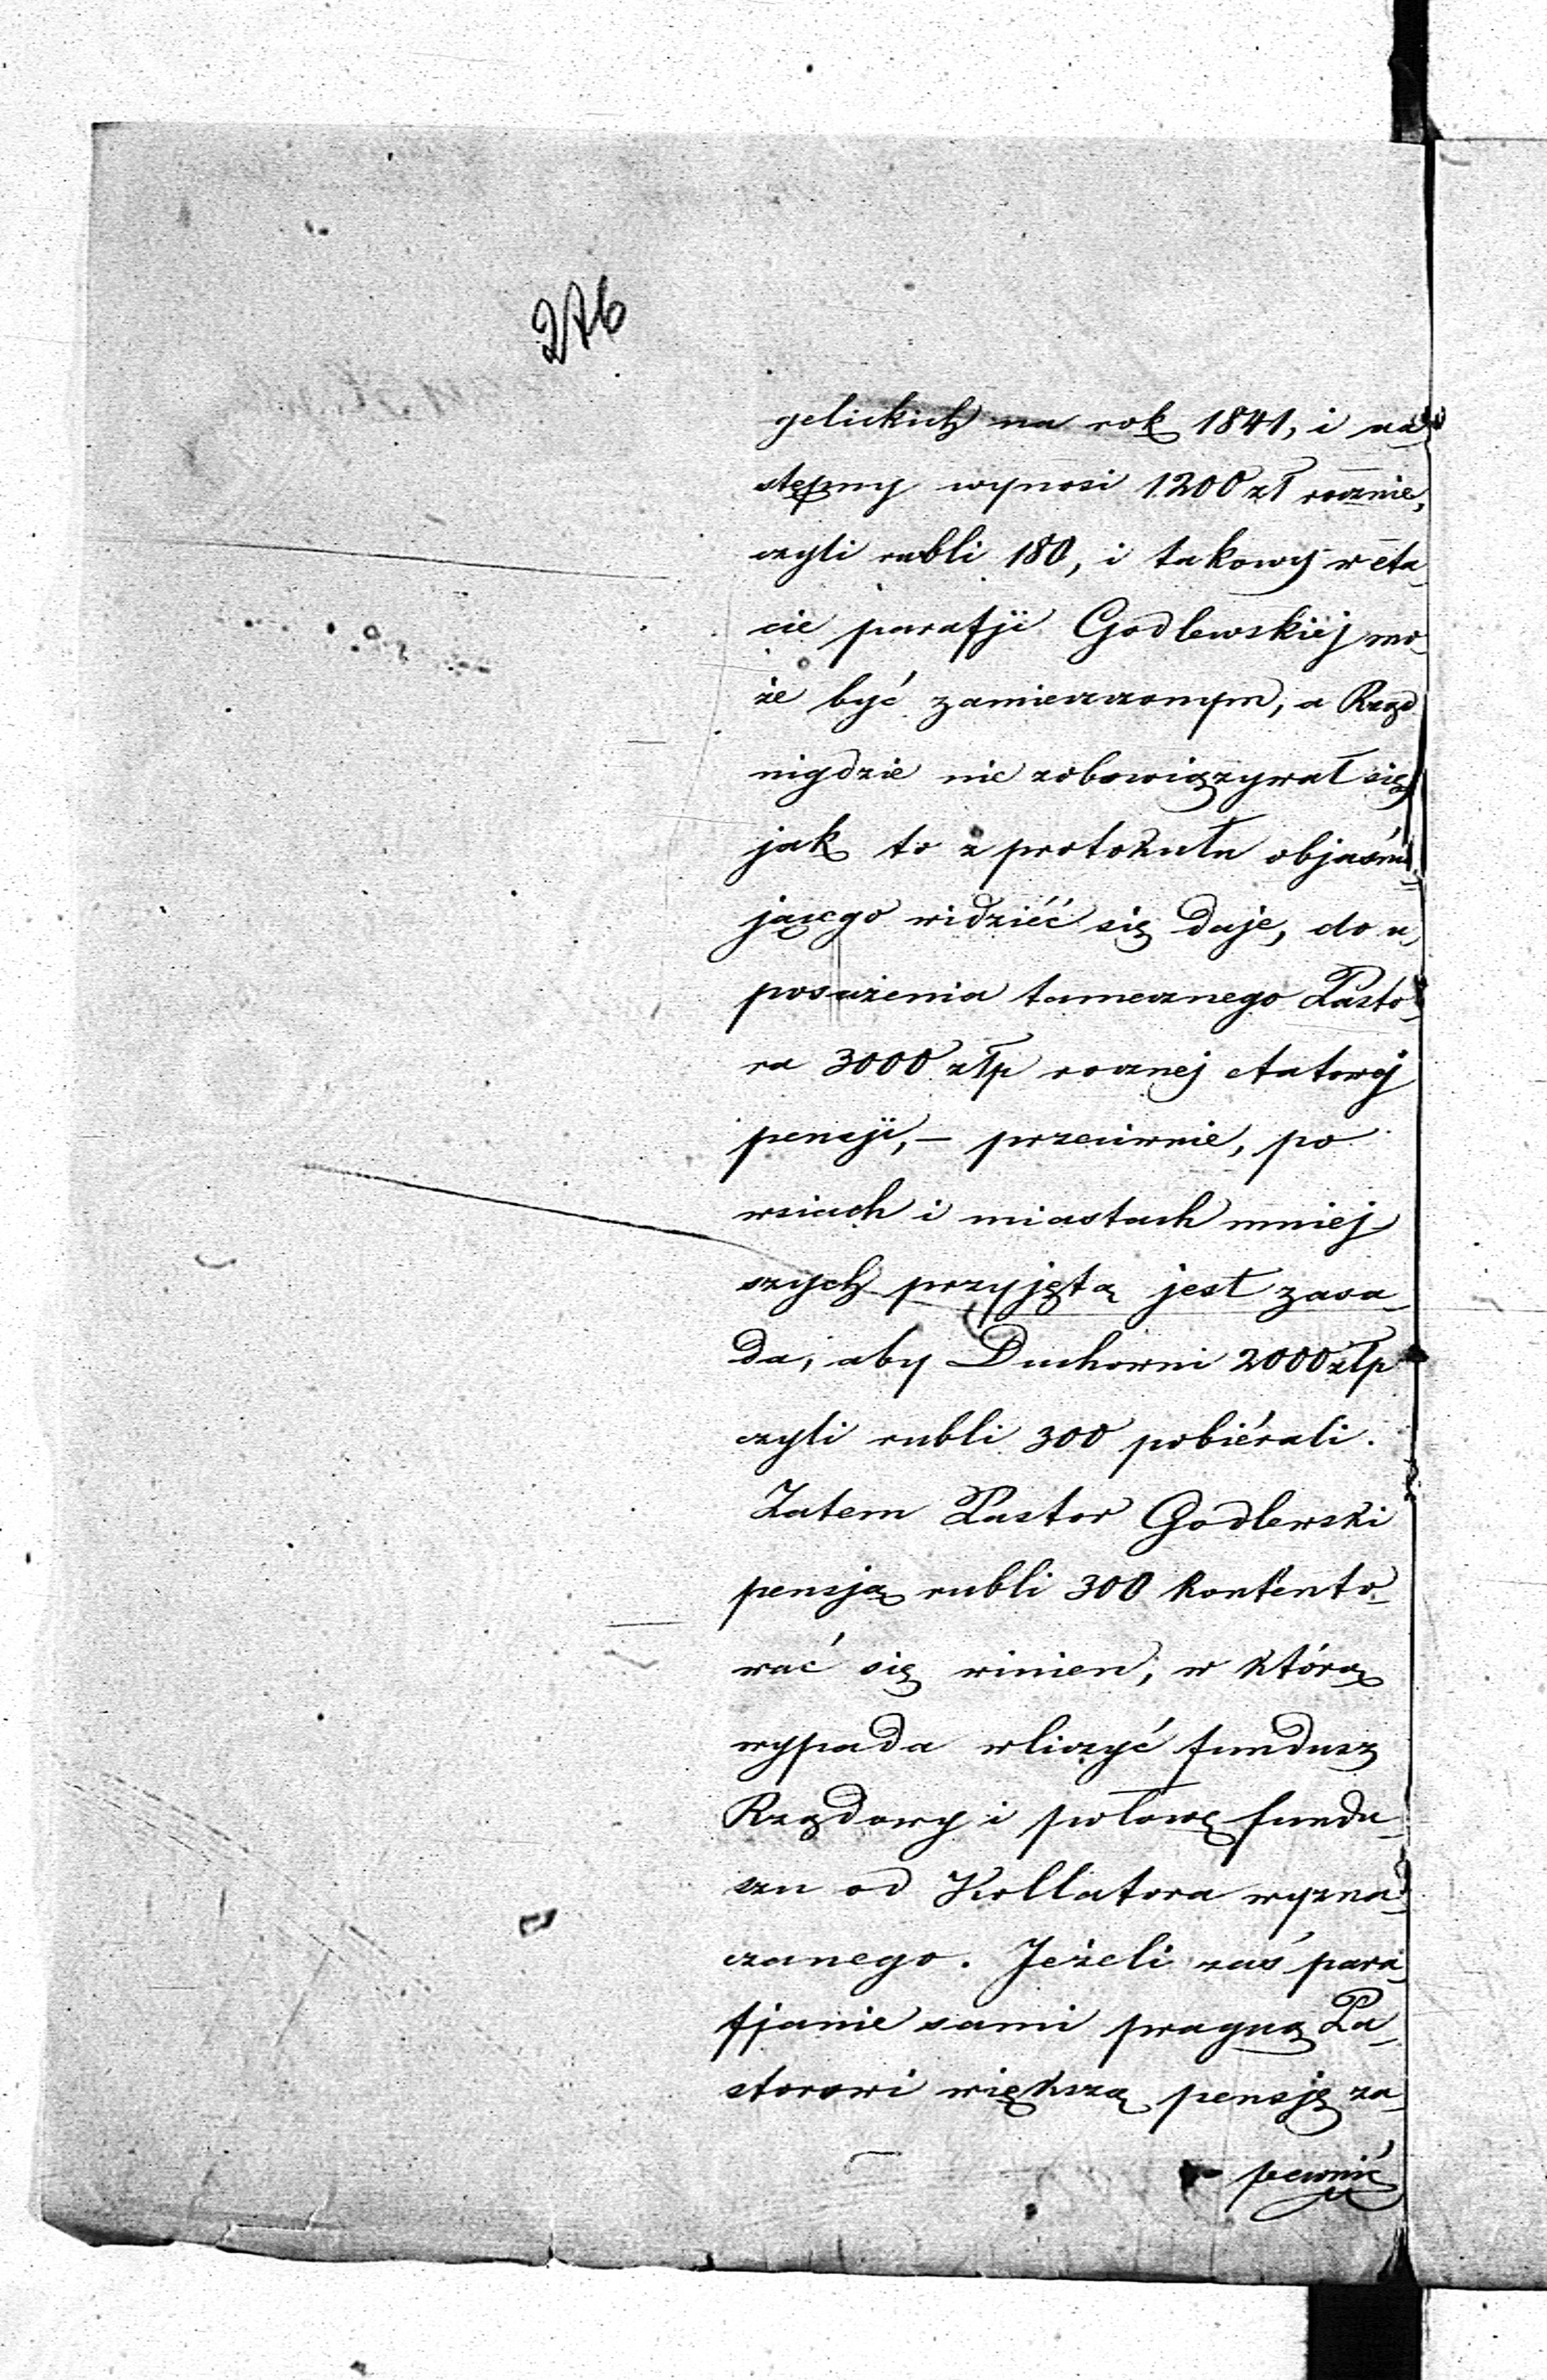 276
gelickich na rok 1841, i na_
stępny wynosi 1200 zł rocznie,
czyli rubli 180, i takowy w eta_
cie parafji Godlewskiéj mo_
że być zamieszczonym, a Rząd
nigdzie nie zobowiązywał się
jak to z protokułu objaśni_
jącego widziéć się daje, do u_
posażenia tamecznego Pasto_
ra 3000 złp rocznej etatowéj
pensji, – przeciwnie, po
wsiach i miastach mniej_
szych przyjętą jest zasa_
da, aby Duchowni 2000 złp
czyli rubli 300 pobiérali.
Zatem Pastor Godlewski
pensją rubli 300 kontento_
wać się winien, w którą
wypada wliczyć fundusz
Rządowy i połowę fundu_
szu od Kollatora wyzna_
czanego. Jeżeli zaś para_
fjanie sami pragną Pa_
storowi większą pensję za_
pewnić